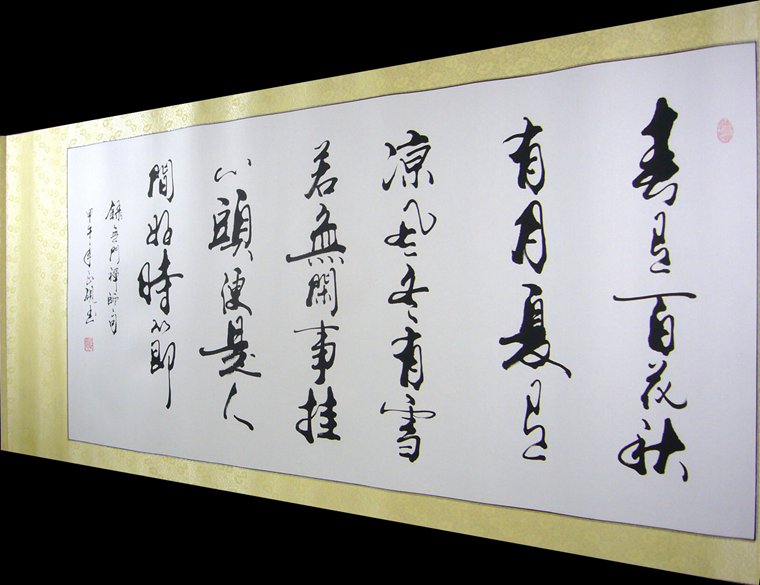 春有百花秋
有月夏有
凉風冬有雪
若無閑事挂
心頭便是人
間好時節
錄無門禪師句
甲午年